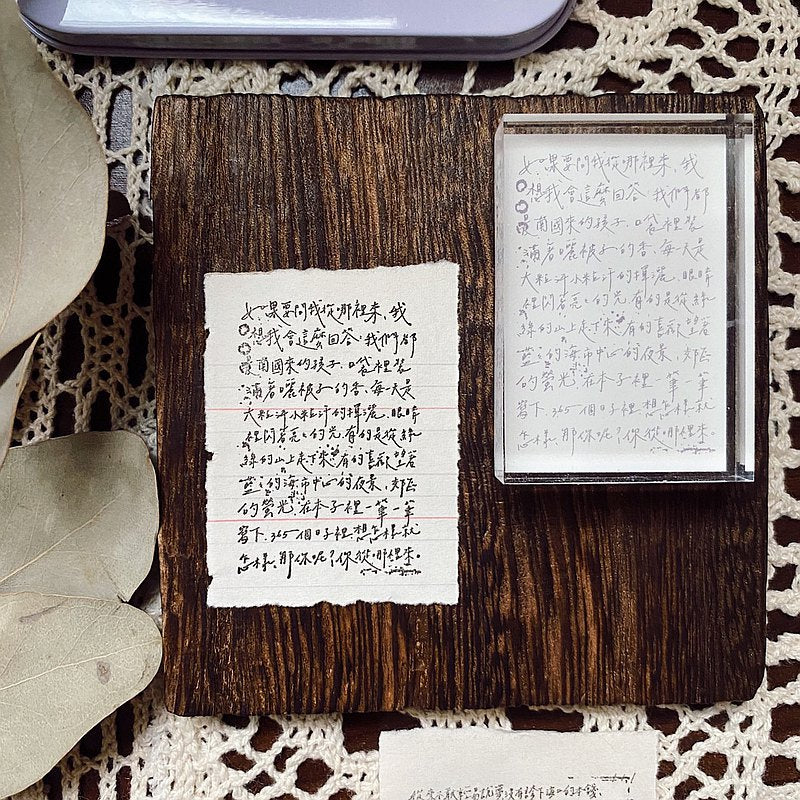 如果要問我從哪裡來,我
想我會這麼回答:我們都
是南國來的孩子.口袋裡裝
滿著曬被子的香.每天是
大粒汗小粒汗的揮灑.眼睛
裡閃著亮亮的光.有的是從綠
綠的山上走下來.有的喜歡望著
藍藍的海.市中心的夜景.郊區
的螢光.在本子裡一筆一筆
寫下.365個日子裡.想怎樣就
怎樣.那你呢?你從哪裡來。
如果要問我從哪裡來,我
想我會這麼回答:我們都
是南國來的孩子.口袋裡裝
滿著曬被子的香.每天是
大粒汗小粒汗的揮灑.眼睛
裡閃著亮亮的光.有的是從綠
綠的山上走下來.有的喜歡望著
藍藍的海.市中心的夜景.郊區
的螢光.在本子裡一筆一筆
寫下.365個日子裡.想怎樣就
怎樣.那你呢?你從哪裡來